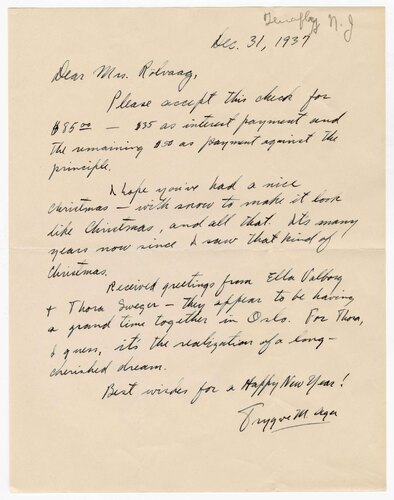 Tenafly N. J
Dec. 31, 1937
Dear Mrs. Rolvaag,
Please accept this check for
$85.00 — $35 as interest payment and
the remaining $50 as payment against the
principle.
I hope you've had a nice
Christmas — with snow to make it look
like Christmas, and all that. Its many
years now since I saw that kind of
Christmas.
Received greetings from Ella Valborg
+ Thora Sweger — they appear to be having
a grand time together in Oslo. For Thora,
I guess, it's the realization of a long-
cherished dream.
Best wishes for a Happy New Year!
Trygve M. Ager